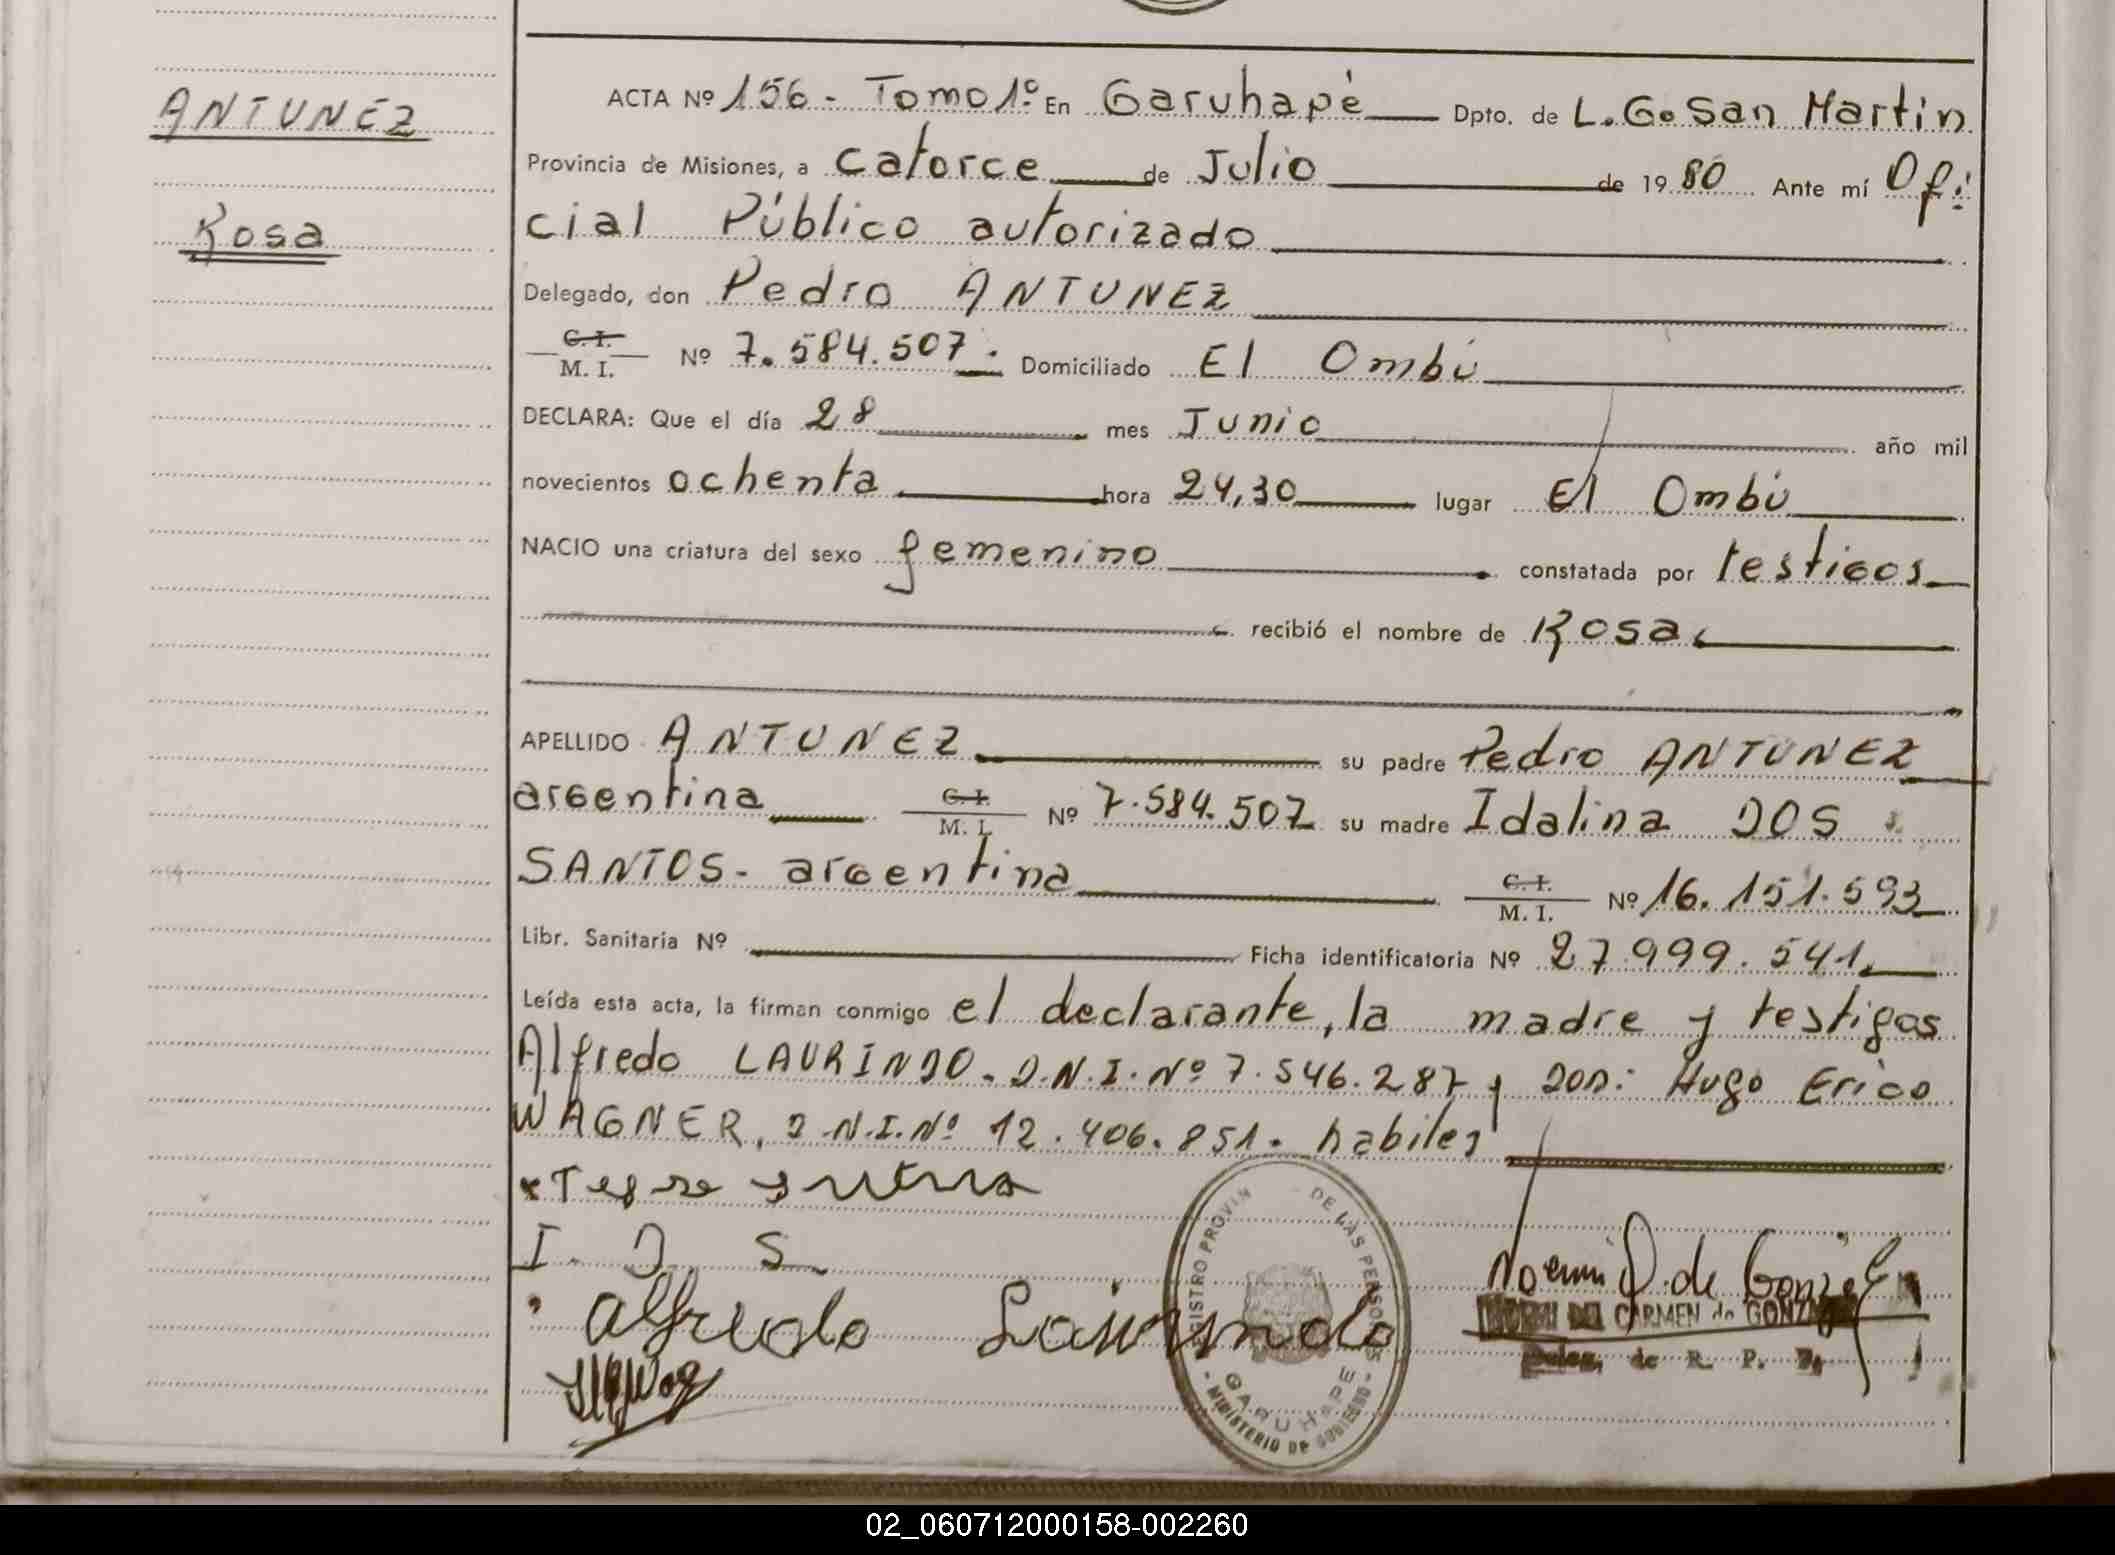 ANTUNEZ
Rosa
ACTA Nº 156 - Tomo 1º En Garuhapè Dpto. de L. G. San Martin
Provincia de Misiones, a catorce de Julio de 1980 Ante mí Ofi
cial Público autorizado
Delegado, don Pedro ANTUNEZ
C. I.
M. I. Nº 7.584.507. Domiciliado El Ombú
DECLARA: Que el día 28 mes Junio año mil
novecientos ochenta hora 24,30 lugar El Ombú
NACIO una criatura del sexo femenino constatada por testigos
recibió el nombre de Rosa
APELLIDO ANTUNEZ su padre Pedro ANTUNEZ
argentina C. I. M. I. Nº 7.584.507 su madre Idalina DOS
SANTOS - argentina C. I. M. I. Nº 16.151.593
Libr. Sanitaria Nº Ficha identificatoria Nº 27.999.541
Leída esta acta, la firman conmigo el declarante, la madre y testigos
Alfredo LAURINDO - D.N.I. Nº 7.546.287 y don: Hugo Erico
WAGNER, D.N.I. Nº 12.406.851. habiles
I. D S
alfredo
Noemi D. de Gonzalez
CARMEN de GONZALEZ
Deleg. de R. P.
REGISTRO PROVIN DE LAS PERSONAS
GARUHAPE
- MINISTERIO DE GOBIERNO -
02_060712000158-002260